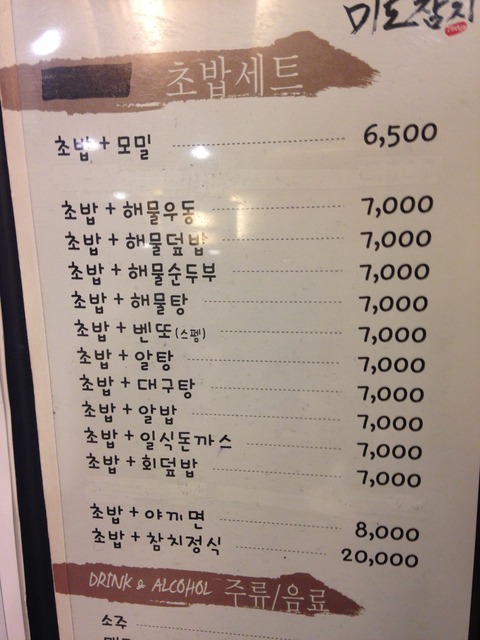 미도참치
초밥세트
초밥+모밀 6,500
초밥+해물우동 7,000
초밥+해물덮밥 7,000
초밥+해물순두부 7,000
초밥+해물탕 7,000
초밥+벤또(스펨) 7,000
초밥+알탕 7,000
초밥+대구탕 7,000
초밥+알밥 7,000
초밥+일식돈까스 7,000
초밥+회덮밥 7,000
초밥+야끼면 8,000
초밥+참치정식 20,000
DRINK & ALCOHOL 주류/음료
소주